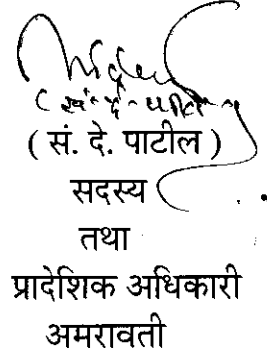 ( सं. दे. पाटील )
सदस्य
तथा
प्रादेशिक अधिकारी
अमरावती